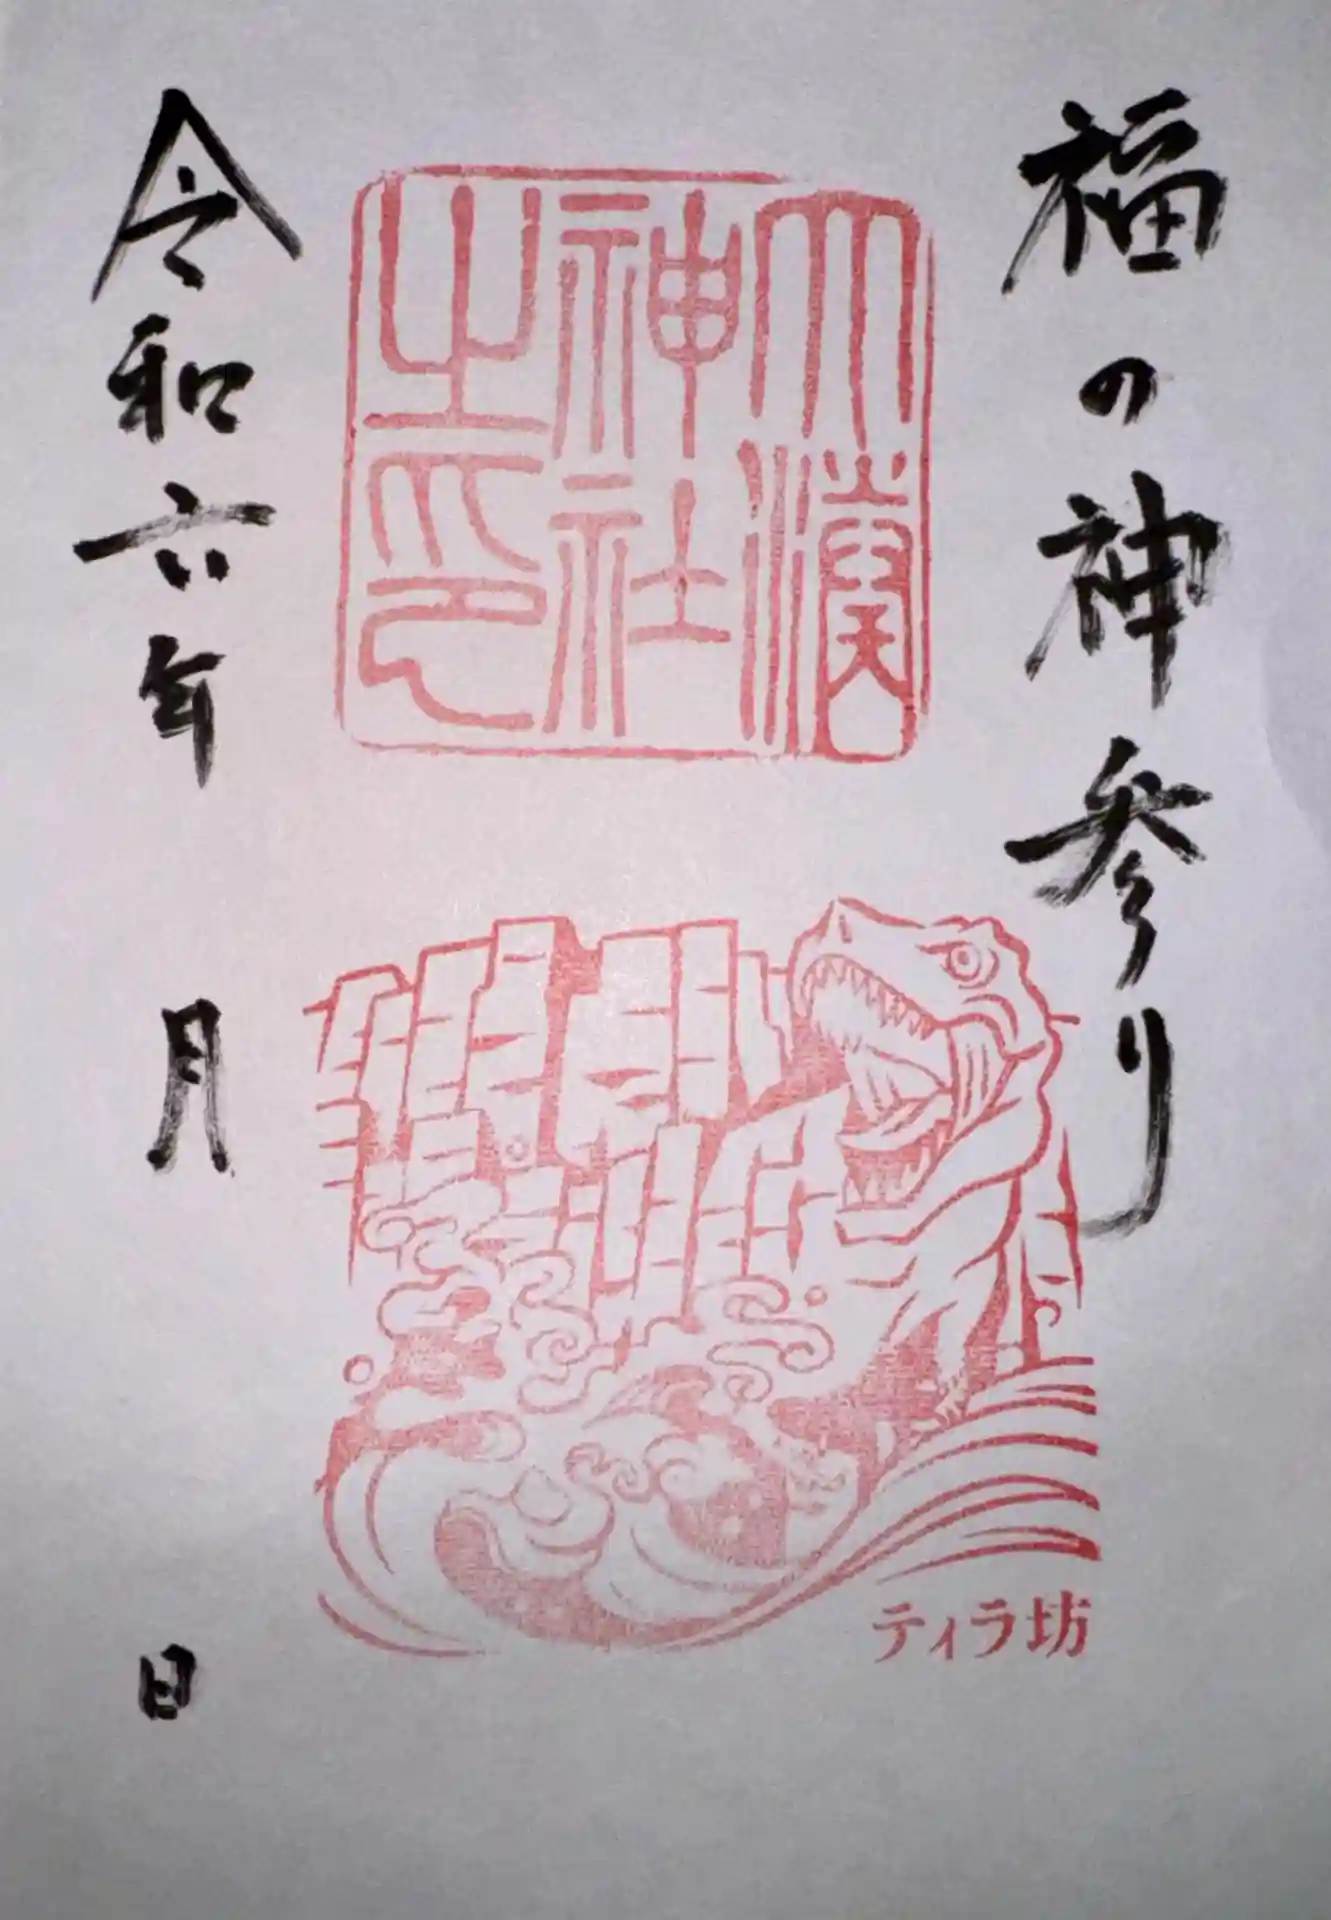 福の神参り
大湊神社之印
令和六年　月　日
ティラ坊